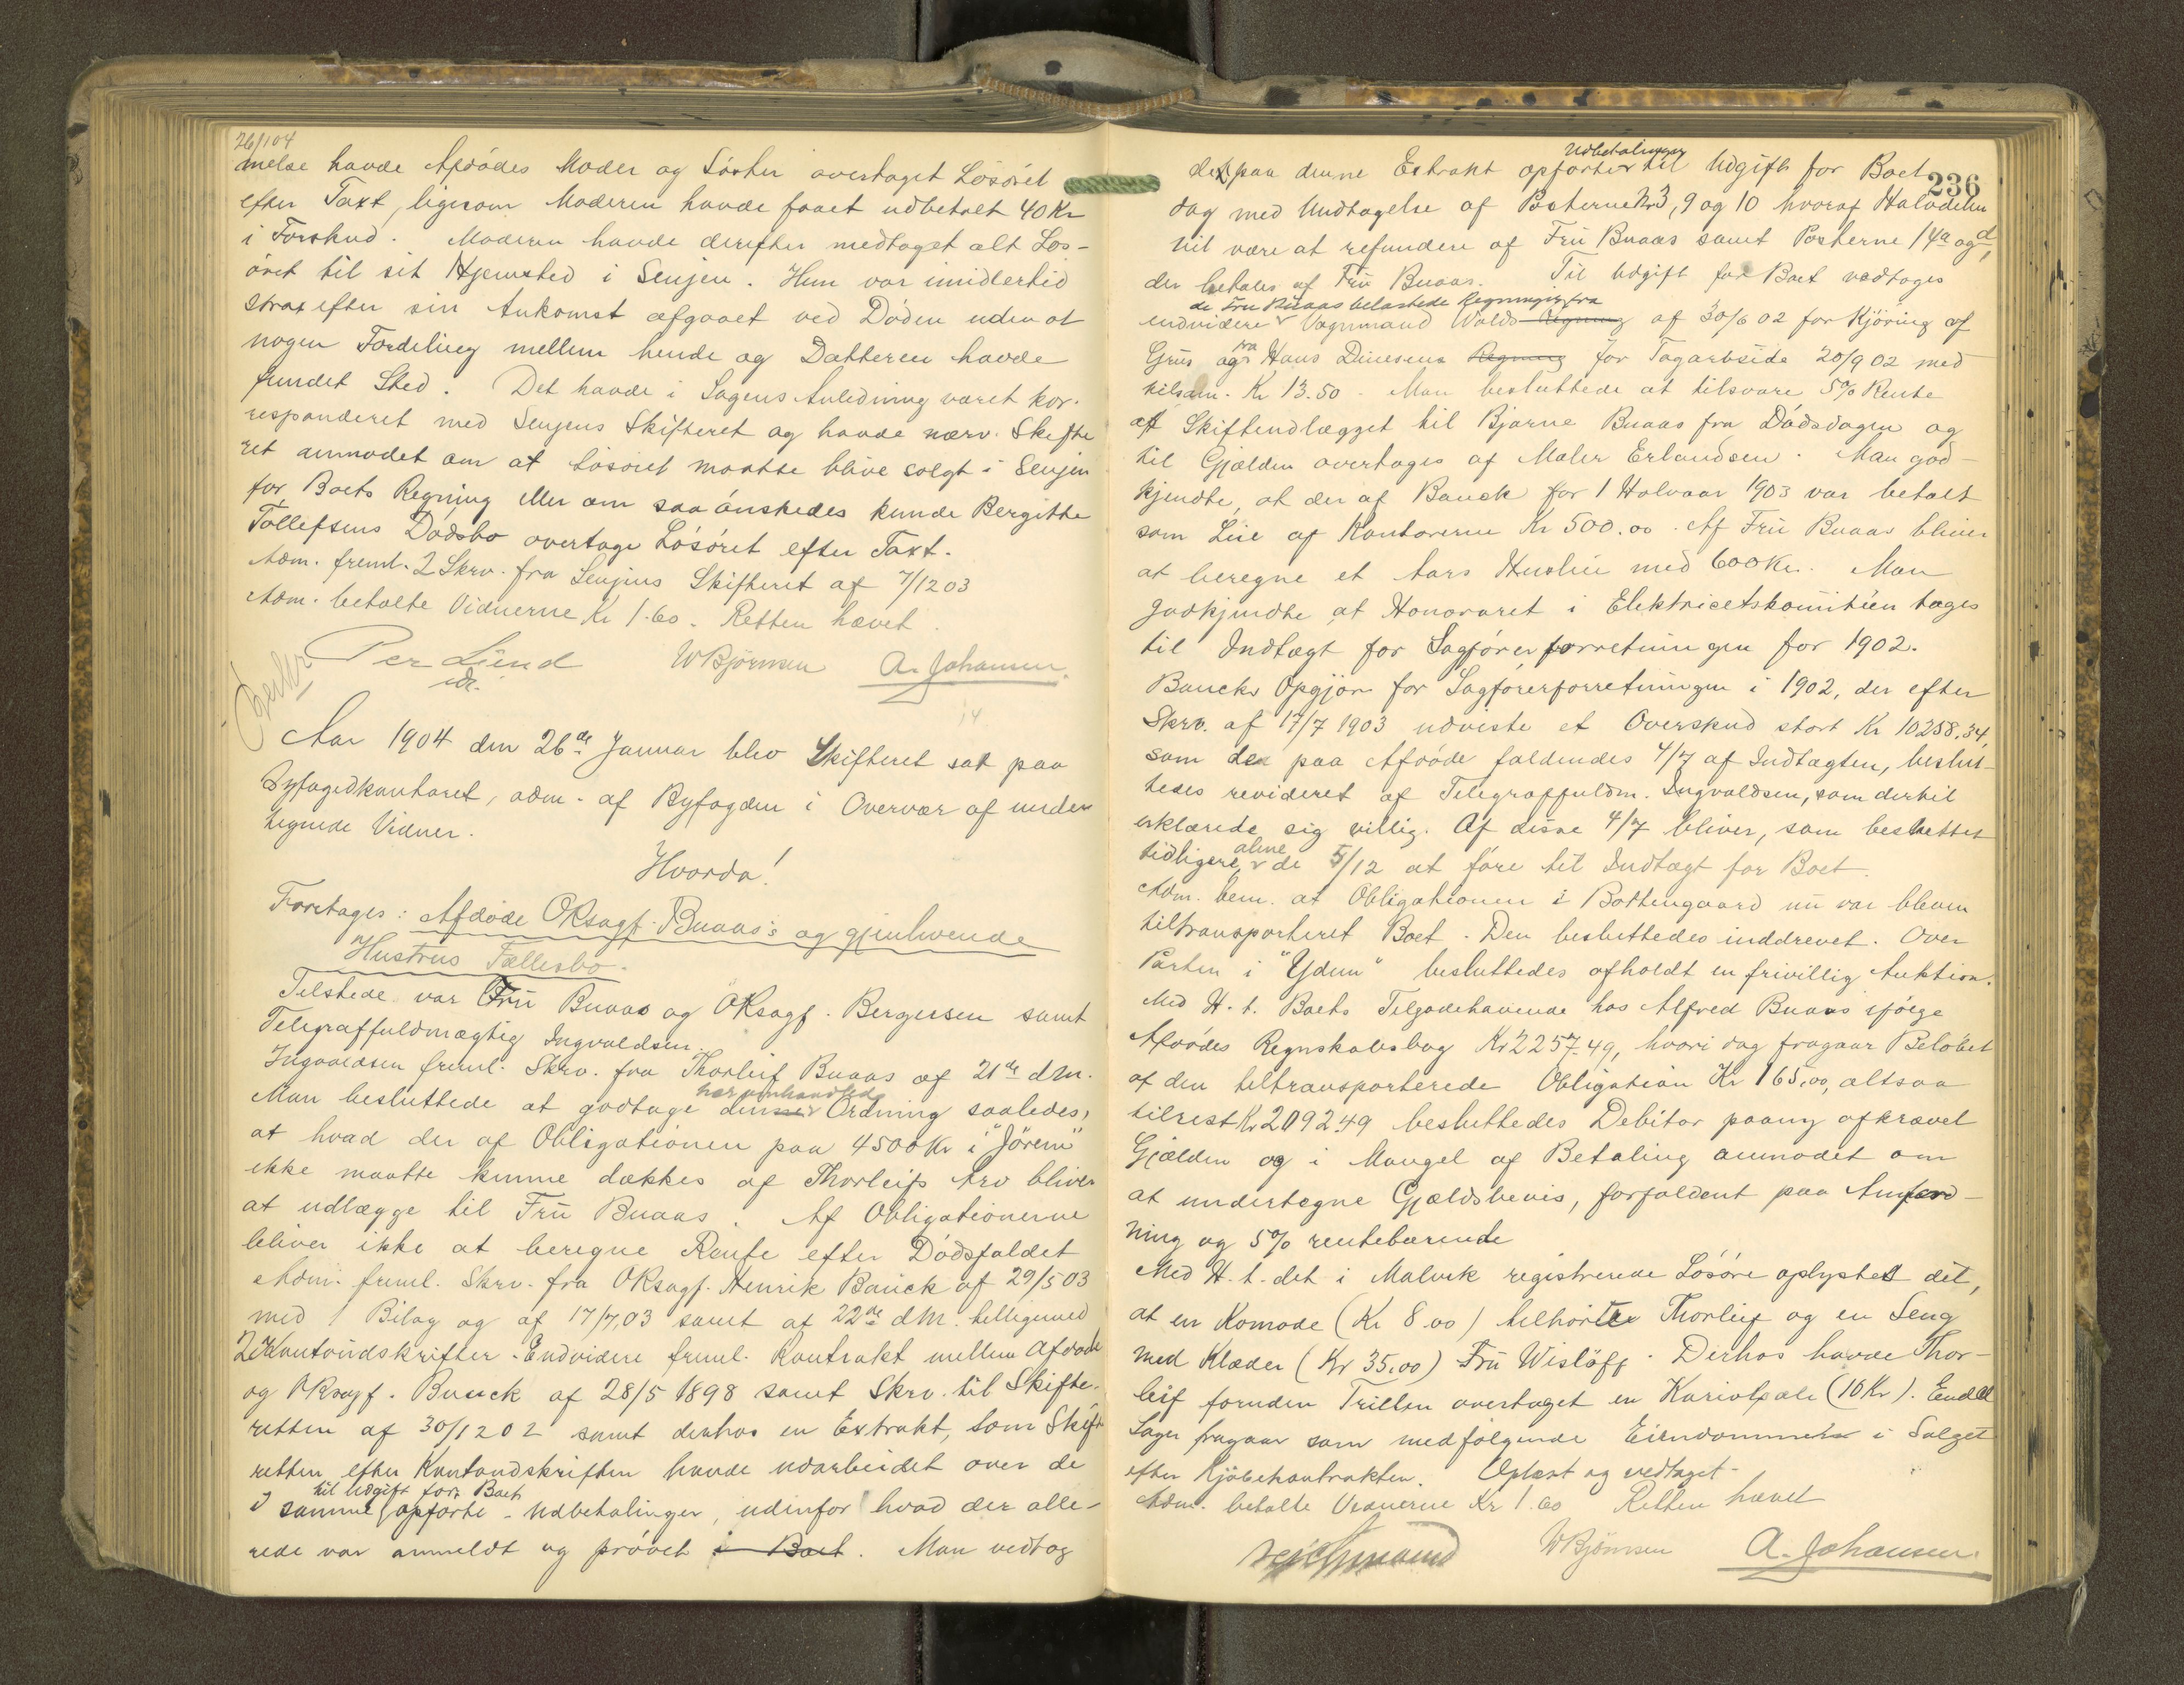 26/1 04
melse havde Afdödes Moder og Söster overtaget Lösöret
efter Taxt, ligesom Moderen havde faaet udbetalt 40 Kr
i Forskud. Moderen havde derefter medtaget alt Lös-
öret til sit Hjemsted i Senjen. Hun var imidlertid
strax efter sin Ankomst afgaaet ved Döden uden at
nogen Fordeling mellem hende og Datteren havde
fundet Sted. Det havde i Sagens Anledning været kor-
responderet med Senjens Skifteret og havde nærv. Skifte
ret anmodet om at Lösöret maatte blive solgt i Senjen
for Boets Regning eller om saa önskedes kunde Bergitte
Tollefsens Dödsbo overtage Lösöret efter Taxt.
Adm. freml. 2 Skrv. fra Senjens Skifteret af 7/12 03
Adm. betalte Vidnerne Kr 1.60. Retten hævet.
Per Lund WBjörnsen A. Johansen
cst.
Aar 1904 den 26de Januar blev Skifteret sat paa
Byfogedkontoret, adm. af Byfogden i Overvær af under
tegnede Vidner.
Hvorda!
Foretages: Afdöde ORsagf. Buaas's og gjenlevende
Hustrus Fællesbo.
Tilstede var Fru Buaas og ORsagf. Bergersen samt
Telegraffuldmægtig Ingvaldsen.
Ingvaldsen freml. Skrv. fra Thorleif Buaas af 21de dM.
Man besluttede at godtage den heromhandlede Ordning saaledes,
at hvad der af Obligationen paa 4500 Kr i "Jörem"
ikke maatte kunne dækkes af Thorleifs Arv bliver
at udlægge til Fru Buaas. Af Obligationerne
bliver ikke at beregne Rente efter Dödsfaldet
Adm. freml. Skrv. fra ORsagf. Henrik Bauck af 29/5 03
med 1 Bilag og af 17/7 03 samt af 22de dM. tilligemed
2 Kontoudskrifter. Endvidere freml. Kontrakt mellem Afdöde
og ORsagf. Bauck af 28/5 1898 samt Skrv. til Skifte-
retten af 30/12 02 samt derhos en Extrakt, som Skifte
retten efter Kontoudskriften havde udarbeidet over de
i samme til Udgift for Boet opförte Udbetalinger, udenfor hvad der alle-
rede var anmeldt og prövet i Boet. Man vedtog
236
de paa denne Extrakt opförte Udbetalinger til Udgift for Boet
dog med Undtagelse af Posterne No 3, 9 og 10 hvoraf Halvdelen
vil være at refundere af Fru Buaas samt Posterne 14a og d,
der betales af Fru Buaas. Til Udgift for Boet vedtoges
endvidere de Fru Buaas belastede Regninger fra Vognmand Wolds Regning af 30/6 02 for Kjöring af
Grus og fra Hans Dinesens Regning for Tagarbeide 20/9 02 med
tilsam. Kr 13.50. Man besluttede at tilsvare 5% Rente
af Skifteudlægget til Bjarne Buaas fra Dödsdagen og
til Gjælden overtages af Maler Erlandsen. Man god-
kjendte, at der af Bauck for 1 Halvaar 1903 var betalt
som Leie af Kontorerne Kr 500.00. Af Fru Buaas bliver
at beregne et Aars Husleie med 600 Kr. Man
godkjendte at Honoraret i Elektricetskomiteen tages
til Indtægt for Sagförerforretningen for 1902.
Baucks Opgjör for Sagförerforretningen i 1902, der efter
Skrv. af 17/7 1903 udviste et Overskud stort Kr 10258.34,
som de paa Afdöde faldendes 4/7 af Indtægten, beslut-
tedes revideret af Telegraffuldm. Ingvaldsen, som dertil
erklærede sig villig. Af disse 4/7 bliver, som besluttet
tidligere, alene de 5/12 at före til Indtægt for Boet.
Adm. bem. at Obligationen i Bottengaard nu var bleven
tiltransporteret Boet. Den besluttedes inddrevet. Over
Parten i "Ydun" besluttedes afholdt en frivillig Auktion.
Med H. t. Boets Tilgodehavende hos Alfred Buaas ifölge
Afdödes Regnskabsbog Kr 2257.49, hvori dog fragaar Belöbet
af den tiltransporterede Obligation Kr 165.00, altsaa
tilrest Kr 2092 49 besluttedes Debitor paany afkrævet
Gjælden og i Mangel af Betaling anmodet om
at undertegne Gjældsbevis, forfaldent paa Anford-
ning og 5% rentebærende
Med H. t. det i Malvik registrerede Lösöre oplystes det,
at en Komode (Kr 8.00) tilhörte Thorleif og en Seng
med Klæder (Kr 35.00) Fru Wislöff. Derhos havde Thor-
leif foruden Trillen overtaget en Kariolsæle (16 Kr). Endel
Sager fragaar som medfölgende Eiendommen i Salget
efter Kjöbekontrakten. Oplæst og vedtaget.
Adm. betalte Vidnerne Kr 1.60 Retten hævet
WBjörnsen A. Johansen